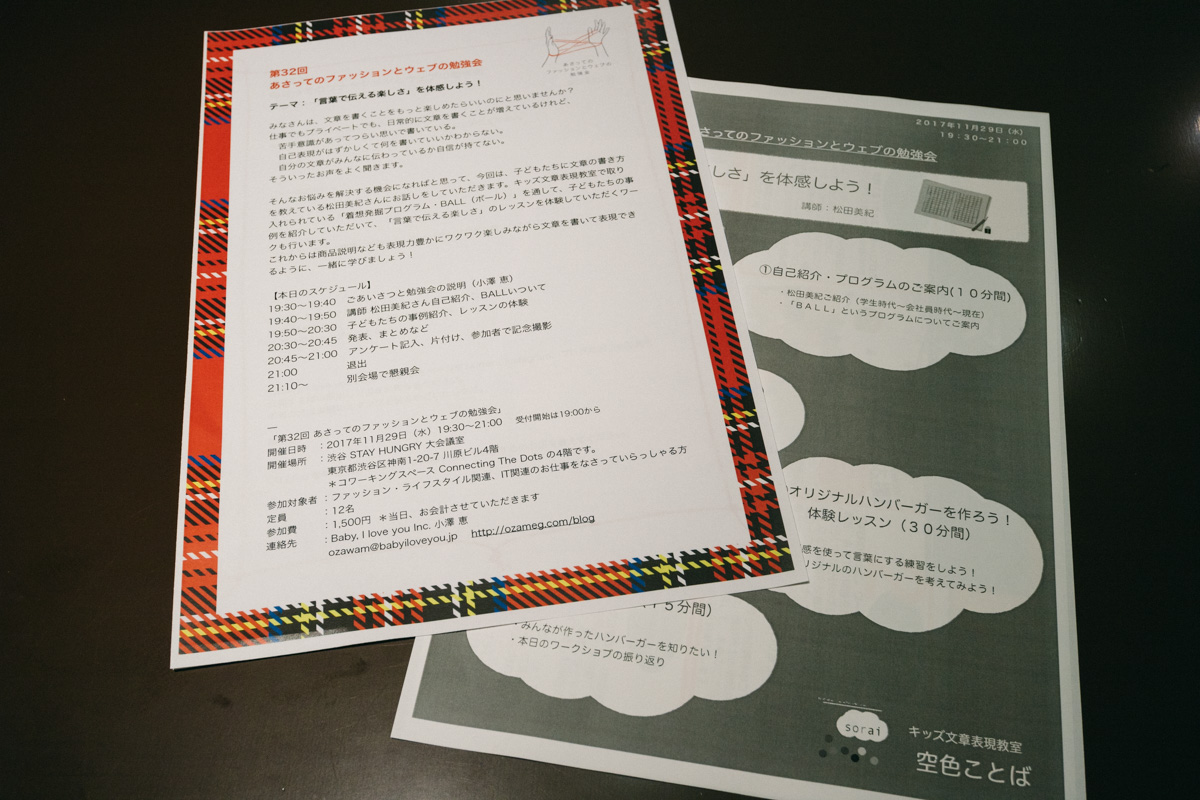 第32回
あさってのファッションとウェブの勉強会
あさっての
ファッションとウェブの
勉強会
テーマ：「言葉で伝える楽しさ」を体感しよう！
みなさんは、文章を書くことをもっと楽しめたらいいのにと思いませんか？
仕事でもプライベートでも、日常的に文章を書くことが増えているけれど、
苦手意識があってつらい思いで書いている。
自己表現がはずかしくて何を書いていいかわからない。
自分の文章がみんなに伝わっているか自信が持てない。
そういったお声をよく聞きます。
そんなお悩みを解決する機会になればと思って、今回は、子どもたちに文章の書き方
を教えている松田美紀さんにお話しをしていただきます。キッズ文章表現教室で取り
入れられている「着想発掘プログラム・BALL（ボール）」を通して、子どもたちの事
例を紹介していただいて、「言葉で伝える楽しさ」のレッスンを体験していただくワー
クも行います。
これからは商品説明なども表現力豊かにワクワク楽しみながら文章を書いて表現でき
るように、一緒に学びましょう！
【本日のスケジュール】
19:30〜19:40 ごあいさつと勉強会の説明（小澤 恵）
19:40〜19:50 講師 松田美紀さん自己紹介、BALLいついて
19:50〜20:30 子どもたちの事例紹介、レッスンの体験
20:30〜20:45 発表、まとめなど
20:45〜21:00 アンケート記入、片付け、参加者で記念撮影
21:00 退出
21:10〜 別会場で懇親会
—
「第32回 あさってのファッションとウェブの勉強会」
開催日時 ：2017年11月29日（水）19:30〜21:00 受付開始は19:00から
開催場所 ：渋谷 STAY HUNGRY 大会議室
東京都渋谷区神南1-20-7 川原ビル4階
＊コワーキングスペース Connecting The Dots の4階です。
参加対象者 ：ファッション・ライフスタイル関連、IT関連のお仕事をなさっていらっしゃる方
定員 ：12名
参加費 ：1,500円 ＊当日、お会計させていただきます
連絡先 ：Baby, I love you Inc. 小澤 恵
ozawam@babyiloveyou.jp http://ozameg.com/blog
2017年11月29日（水）
19：30〜21：00
さってのファッションとウェブの勉強会
しさ」を体感しよう！
講師：松田美紀
①自己紹介・プログラムのご案内(１０分間)
・松田美紀ご紹介（学生時代〜会社員時代〜現在）
・「ＢＡＬＬ」というプログラムについてご案内
オリジナルハンバーガーを作ろう！
体験レッスン（３０分間）
感を使って言葉にする練習をしよう！
リジナルのハンバーガーを考えてみよう！
１５分間）
・みんなが作ったハンバーガーを知りたい！
・本日のワークショプの振り返り
sorai
キッズ文章表現教室
空色ことば